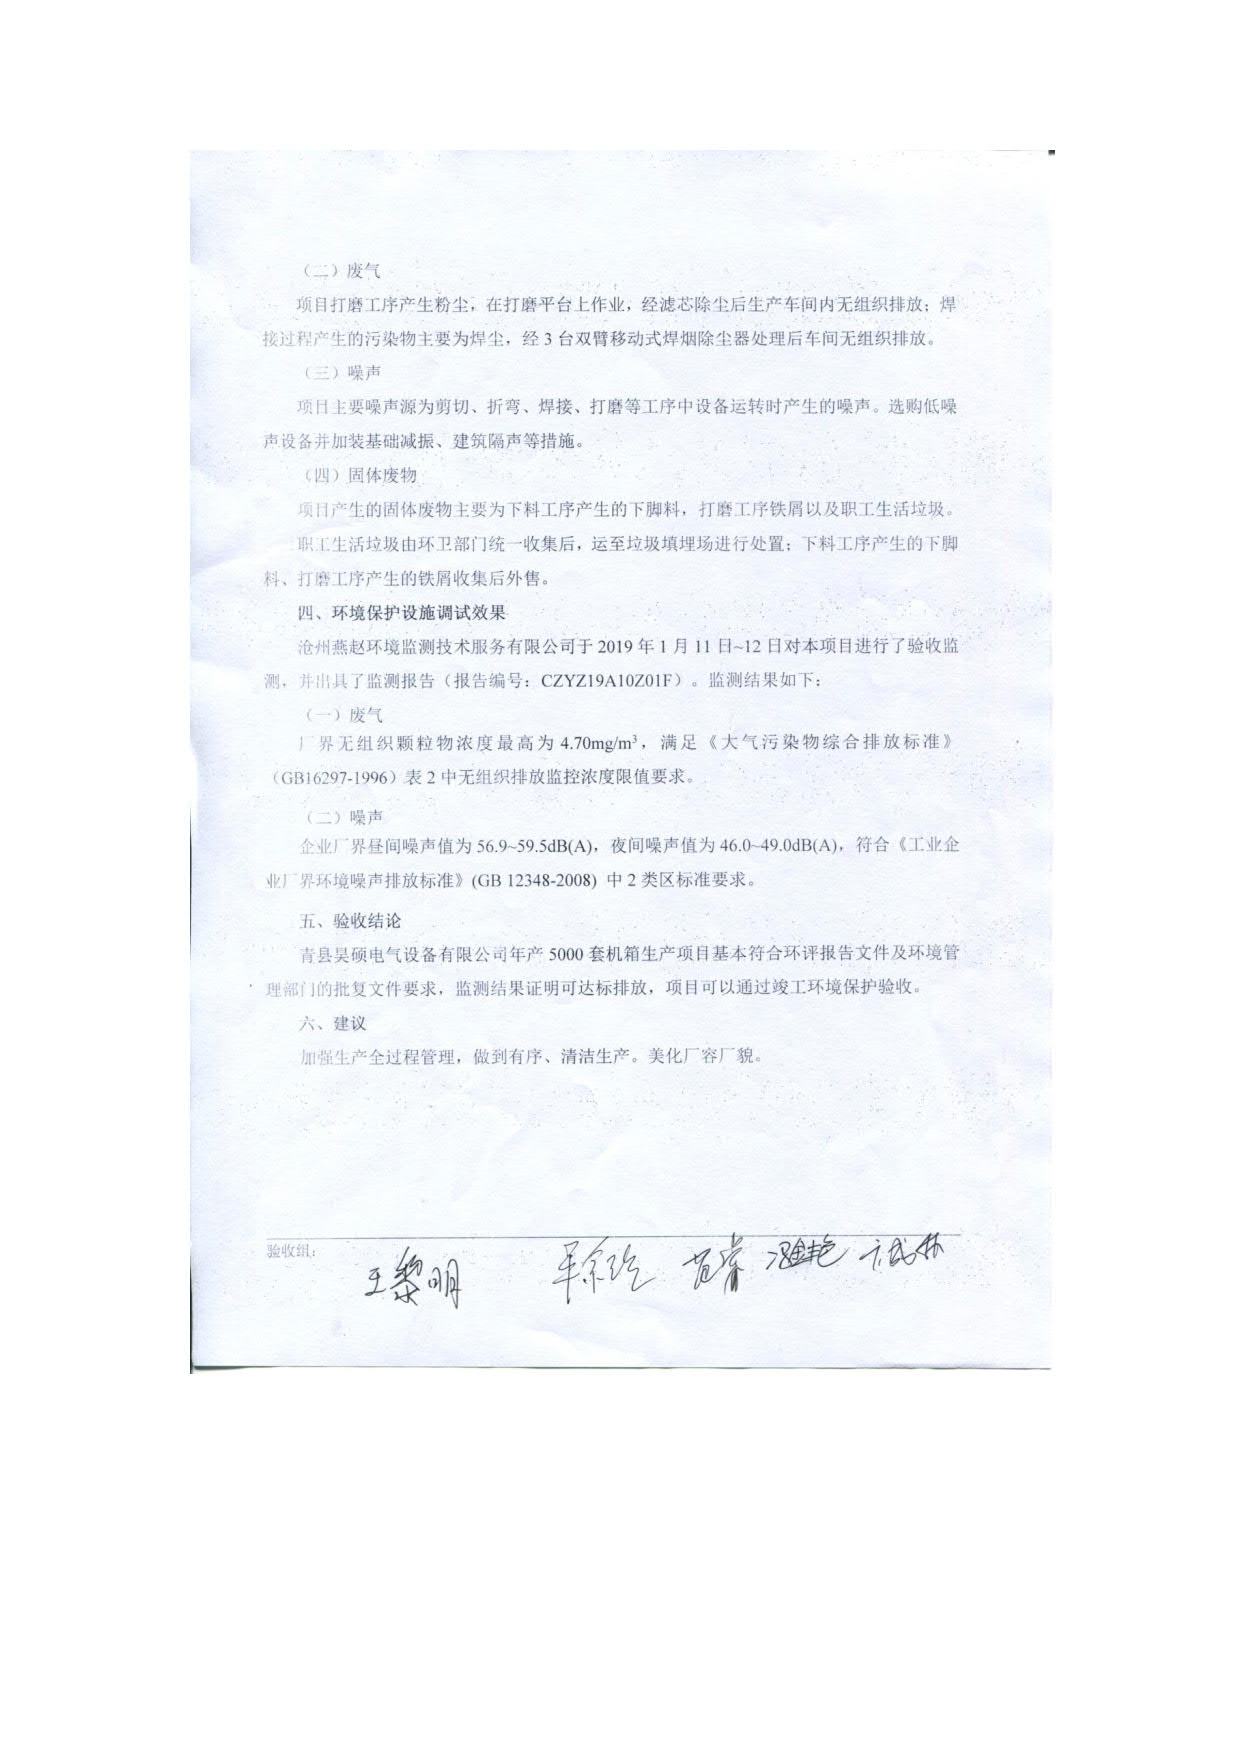 （二）废气
项目打磨工序产生粉尘，在打磨平台上作业，经滤芯除尘后生产车间内无组织排放；焊
接过程产生的污染物主要为焊尘，经 3 台双臂移动式焊烟除尘器处理后车间无组织排放。
（三）噪声
项目主要噪声源为剪切、折弯、焊接、打磨等工序中设备运转时产生的噪声。选购低噪
声设备并加装基础减振、建筑隔声等措施。
（四）固体废物
项目产生的固体废物主要为下料工序产生的下脚料，打磨工序铁屑以及职工生活垃圾。
职工生活垃圾由环卫部门统一收集后，运至垃圾填埋场进行处置；下料工序产生的下脚
料、打磨工序产生的铁屑收集后外售。
四、环境保护设施调试效果
沧州燕赵环境监测技术服务有限公司于 2019 年 1 月 11 日~12 日对本项目进行了验收监
测，并出具了监测报告（报告编号：CZYZ19A10Z01F）。监测结果如下：
（一）废气
厂界无组织颗粒物浓度最高为 4.70mg/m³，满足《大气污染物综合排放标准》
（GB16297-1996）表 2 中无组织排放监控浓度限值要求。
（二）噪声
企业厂界昼间噪声值为 56.9~59.5dB(A)，夜间噪声值为 46.0~49.0dB(A)，符合《工业企
业厂界环境噪声排放标准》(GB 12348-2008) 中 2 类区标准要求。
五、验收结论
青县昊硕电气设备有限公司年产 5000 套机箱生产项目基本符合环评报告文件及环境管
理部门的批复文件要求，监测结果证明可达标排放，项目可以通过竣工环境保护验收。
六、建议
加强生产全过程管理，做到有序、清洁生产。美化厂容厂貌。
验收组：
王黎明 范睿